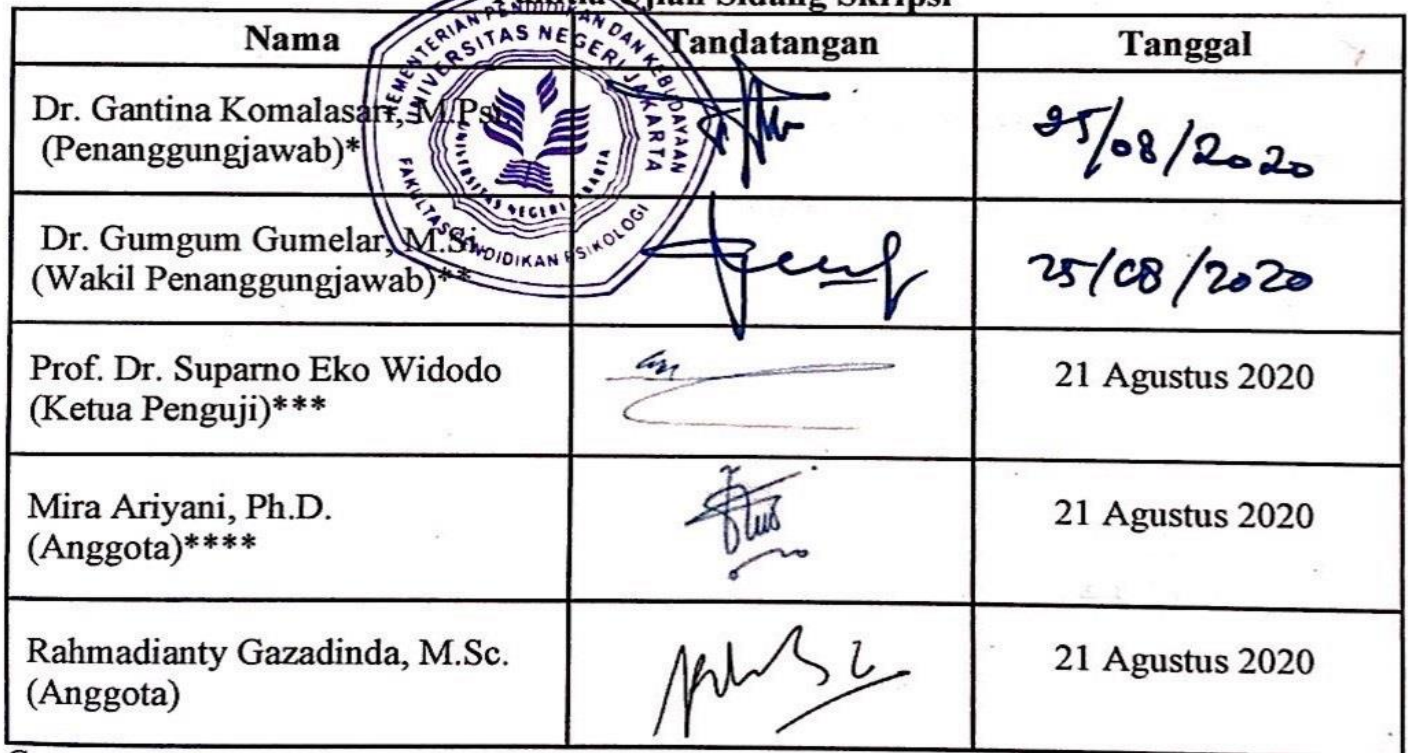 Ujian Sidang Skripsi
Nama Tandatangan Tanggal
Dr. Gantina Komalasari, M.Psi
(Penanggungjawab)* 25/08/2020
Dr. Gumgum Gumelar, M.Si.
(Wakil Penanggungjawab)** 25/08/2020
Prof. Dr. Suparno Eko Widodo
(Ketua Penguji)*** 21 Agustus 2020
Mira Ariyani, Ph.D.
(Anggota)**** 21 Agustus 2020
Rahmadianty Gazadinda, M.Sc.
(Anggota) 21 Agustus 2020
KEMENTERIAN PENDIDIKAN DAN KEBUDAYAAN
UNIVERSITAS NEGERI JAKARTA
FAKULTAS PENDIDIKAN PSIKOLOGI
UNIVERSITAS NEGERI JAKARTA